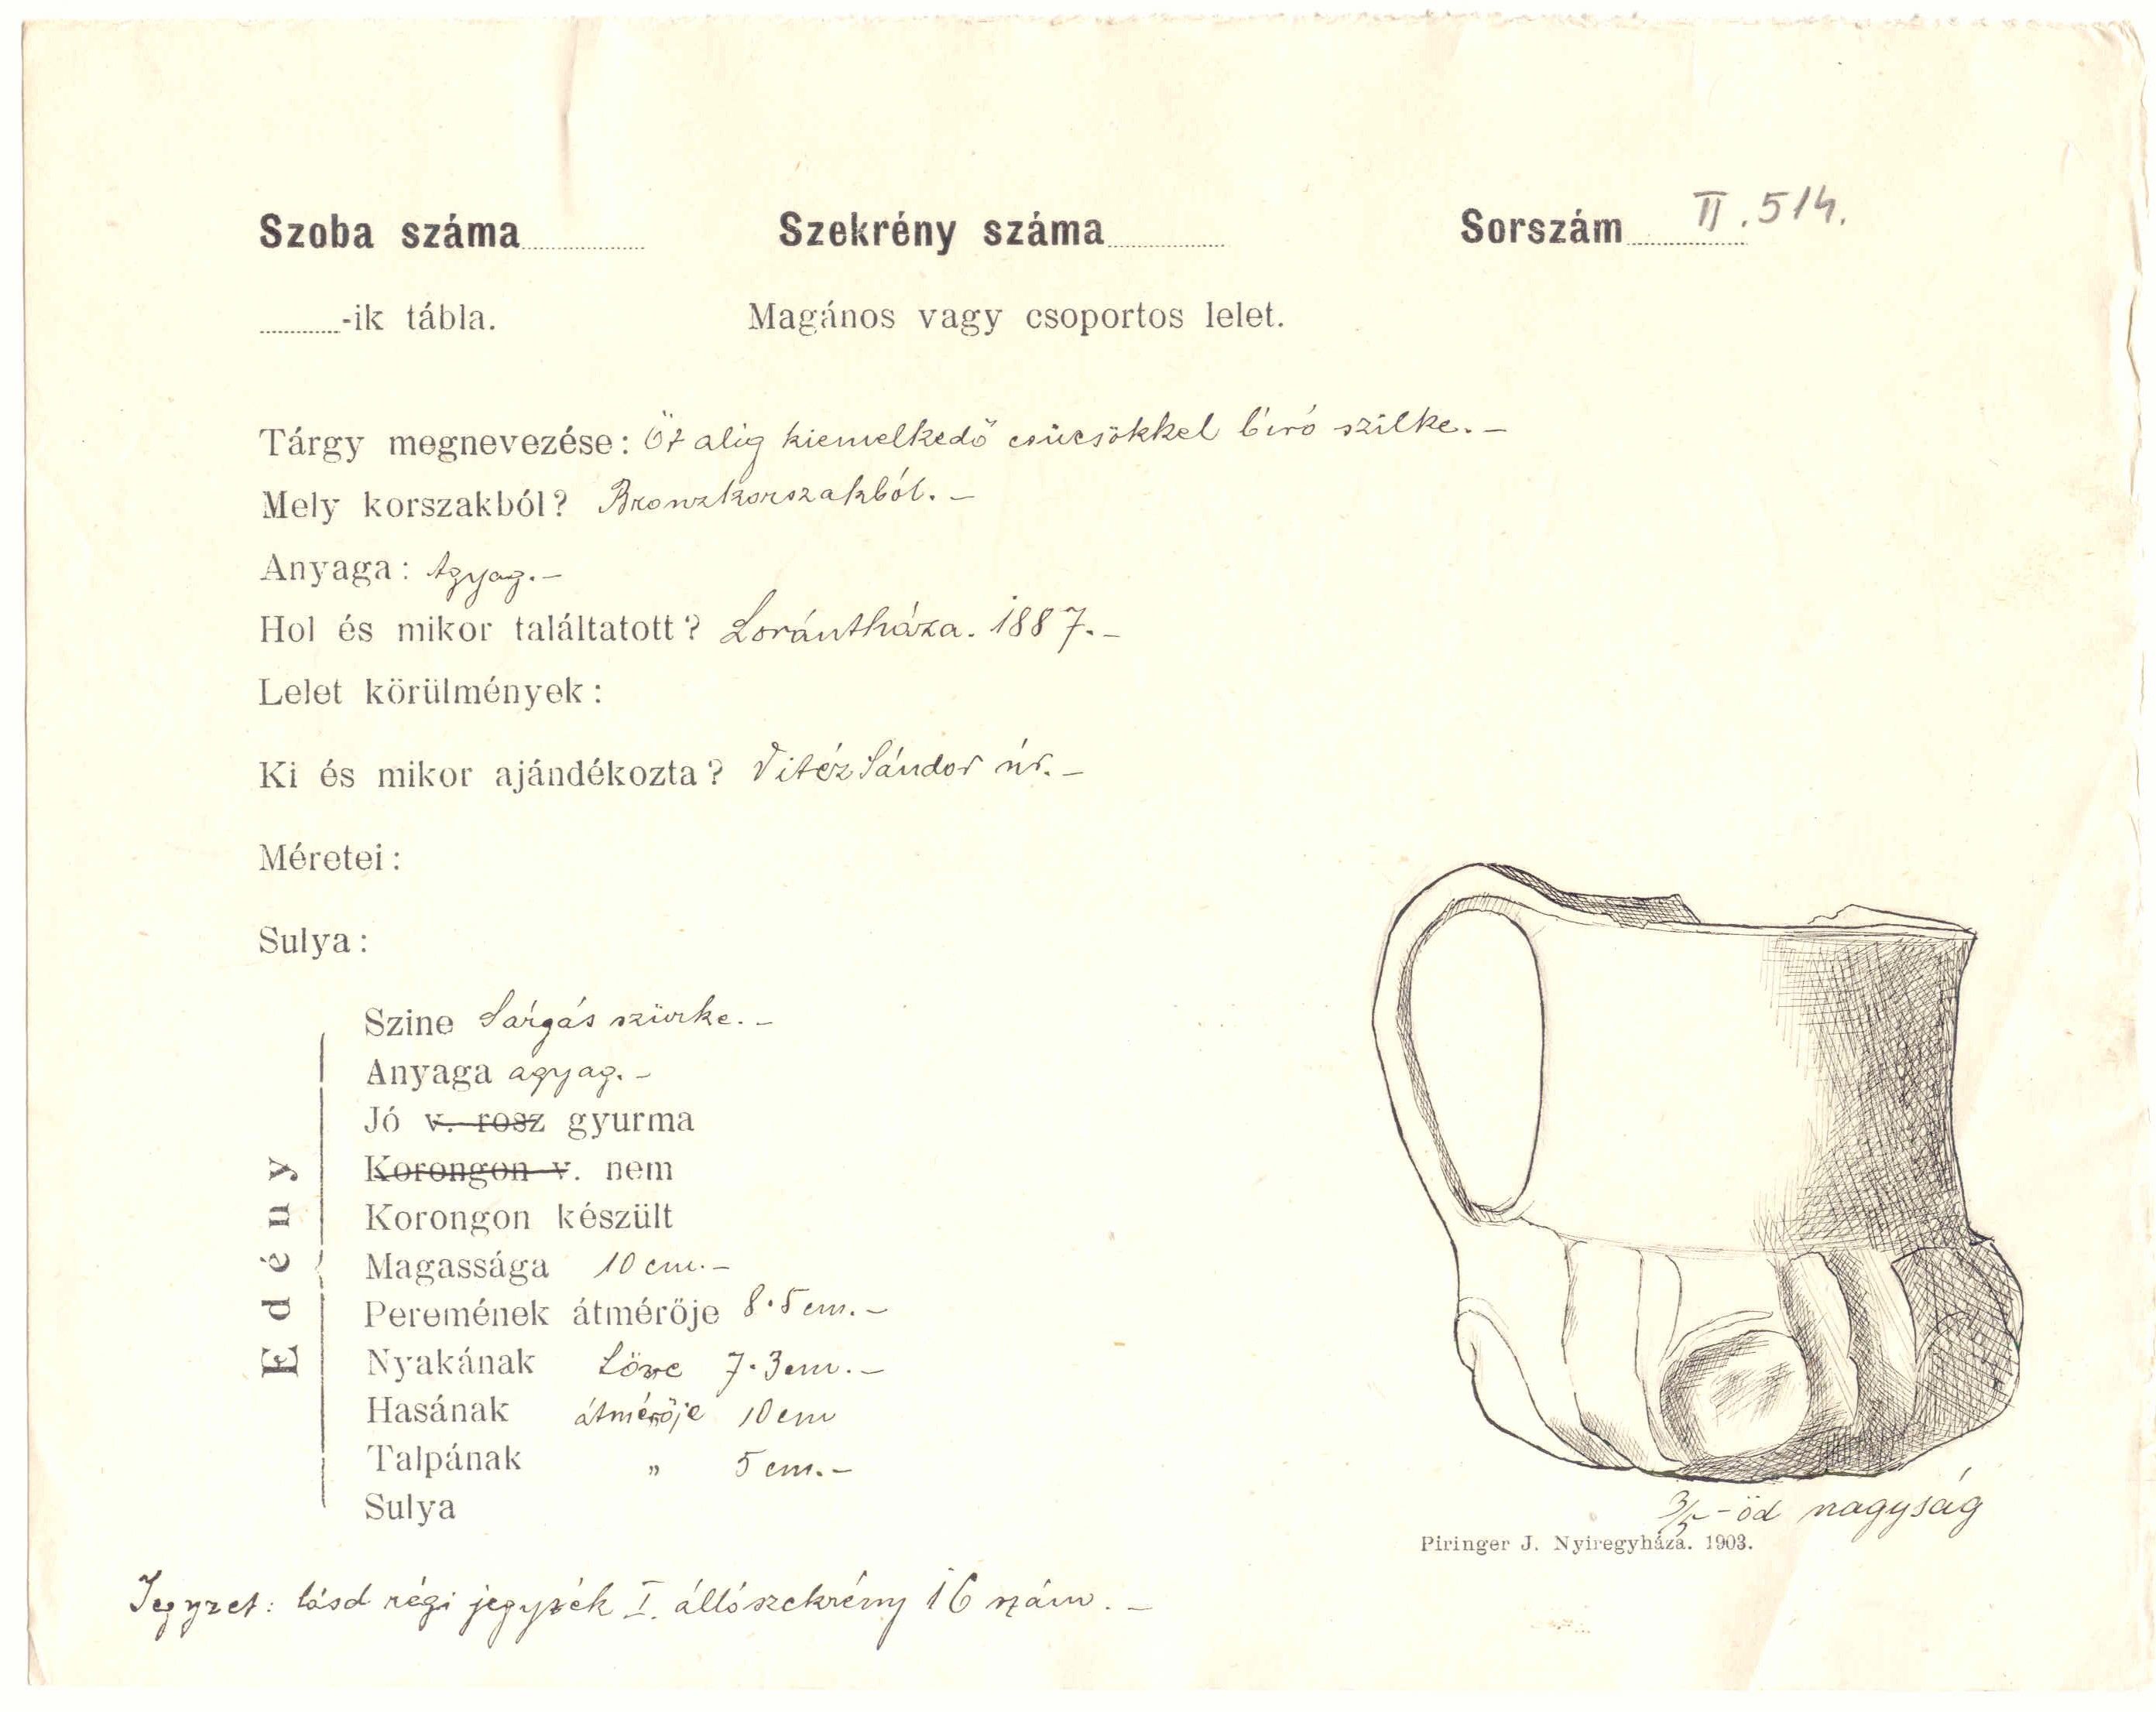 Szoba száma Szekrény száma Sorszám II. 514.
-ik tábla. Magános vagy csoportos lelet.
Tárgy megnevezése: Öt alig kiemelkedő csücsökkel bíró szilke. –
Mely korszakból? Bronzkorszakból. –
Anyaga: Agyag. –
Hol és mikor találtatott? Lorántháza. 1887. –
Lelet körülmények:
Ki és mikor ajándékozta? Vitéz Sándor úr. –
Méretei:
Sulya:
Edény
Szine Sárgás szürke. –
Anyaga agyag. –
Jó v. rosz gyurma
Korongon v. nem
Korongon készült
Magassága 10 cm. –
Peremének átmérője 8·5 cm. –
Nyakának 7·3 cm. –
Hasának átmérője 10 cm
Talpának „ 5 cm. –
Sulya
3/5-öd nagyság
Piringer J. Nyiregyháza. 1903.
Jegyzet: lásd régi jegyzék I. állószekrény 16 szám. –